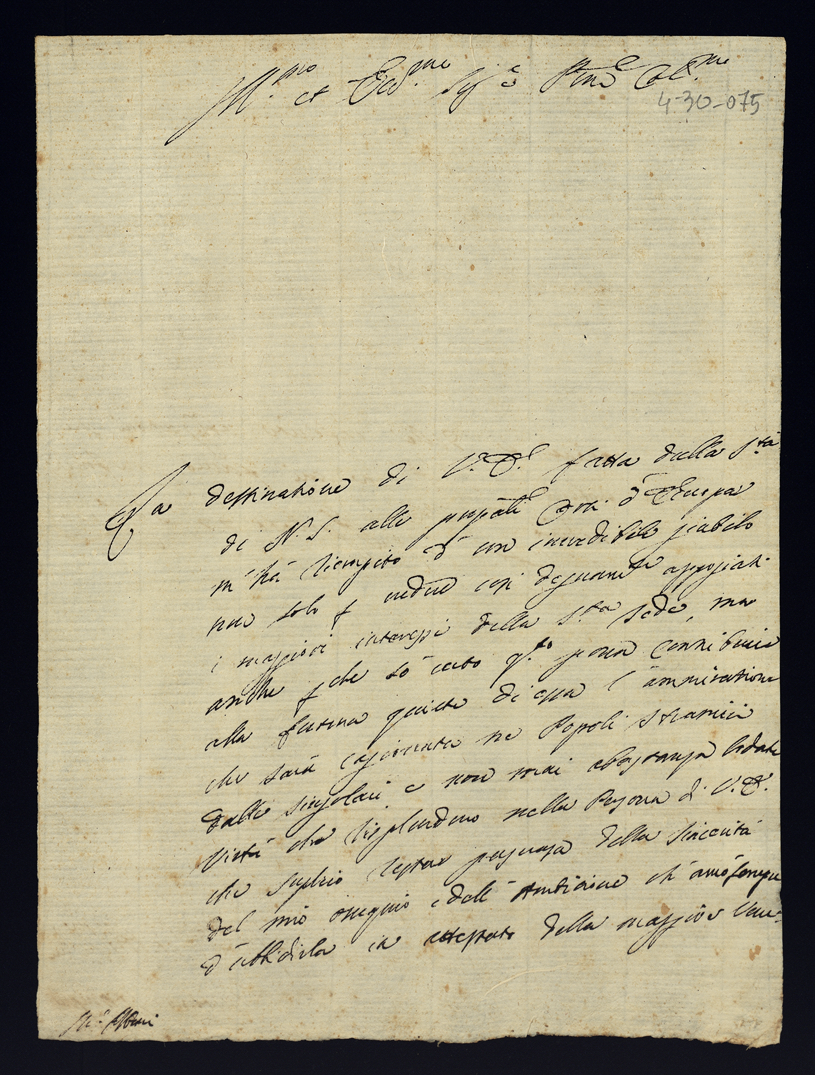 Ill.mo et Ecc.mo Sig.e P.ne Col.mo
4-30-075
La destinatione di V. E. fatta dalla S.tà
di N. S. alle principali Corti d'Europa
m'hà riempito d'un incredibile giubilo
non solo p vedere così degnam.te appoggiati
i maggiori interessi della S.ta Sede, ma
anche p che sò certo q.to possa contribuire
alla futura quiete di essa l'ammiratione
che sarà cagionata ne Popoli stranieri
dalle singolari e non mai abastanza lodate
Virtù che risplendono nella Persona di V. E.
che suplico restar persuasa della sincerità
del mio ossequio e dell'Ambitione ch'avrò sempre
d'ubbidirla in attestato della maggior Vene-